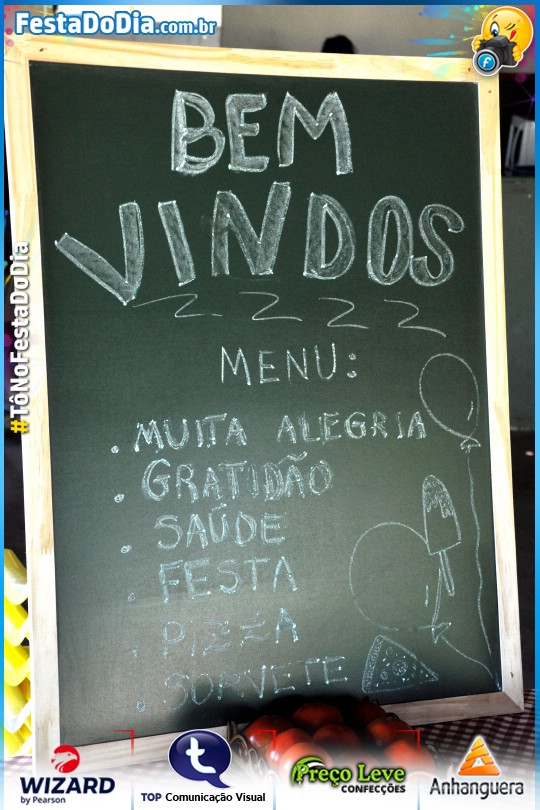 FestaDoDia.com.br
BEM
VINDOS
MENU:
. MUITA ALEGRIA
. GRATIDÃO
. SAÚDE
. FESTA
. PIZZA
. SORVETE
#TôNoFestaDoDia
WIZARD
by Pearson
t
TOP Comunicação Visual
Preço Leve
CONFECÇÕES
Anhanguera